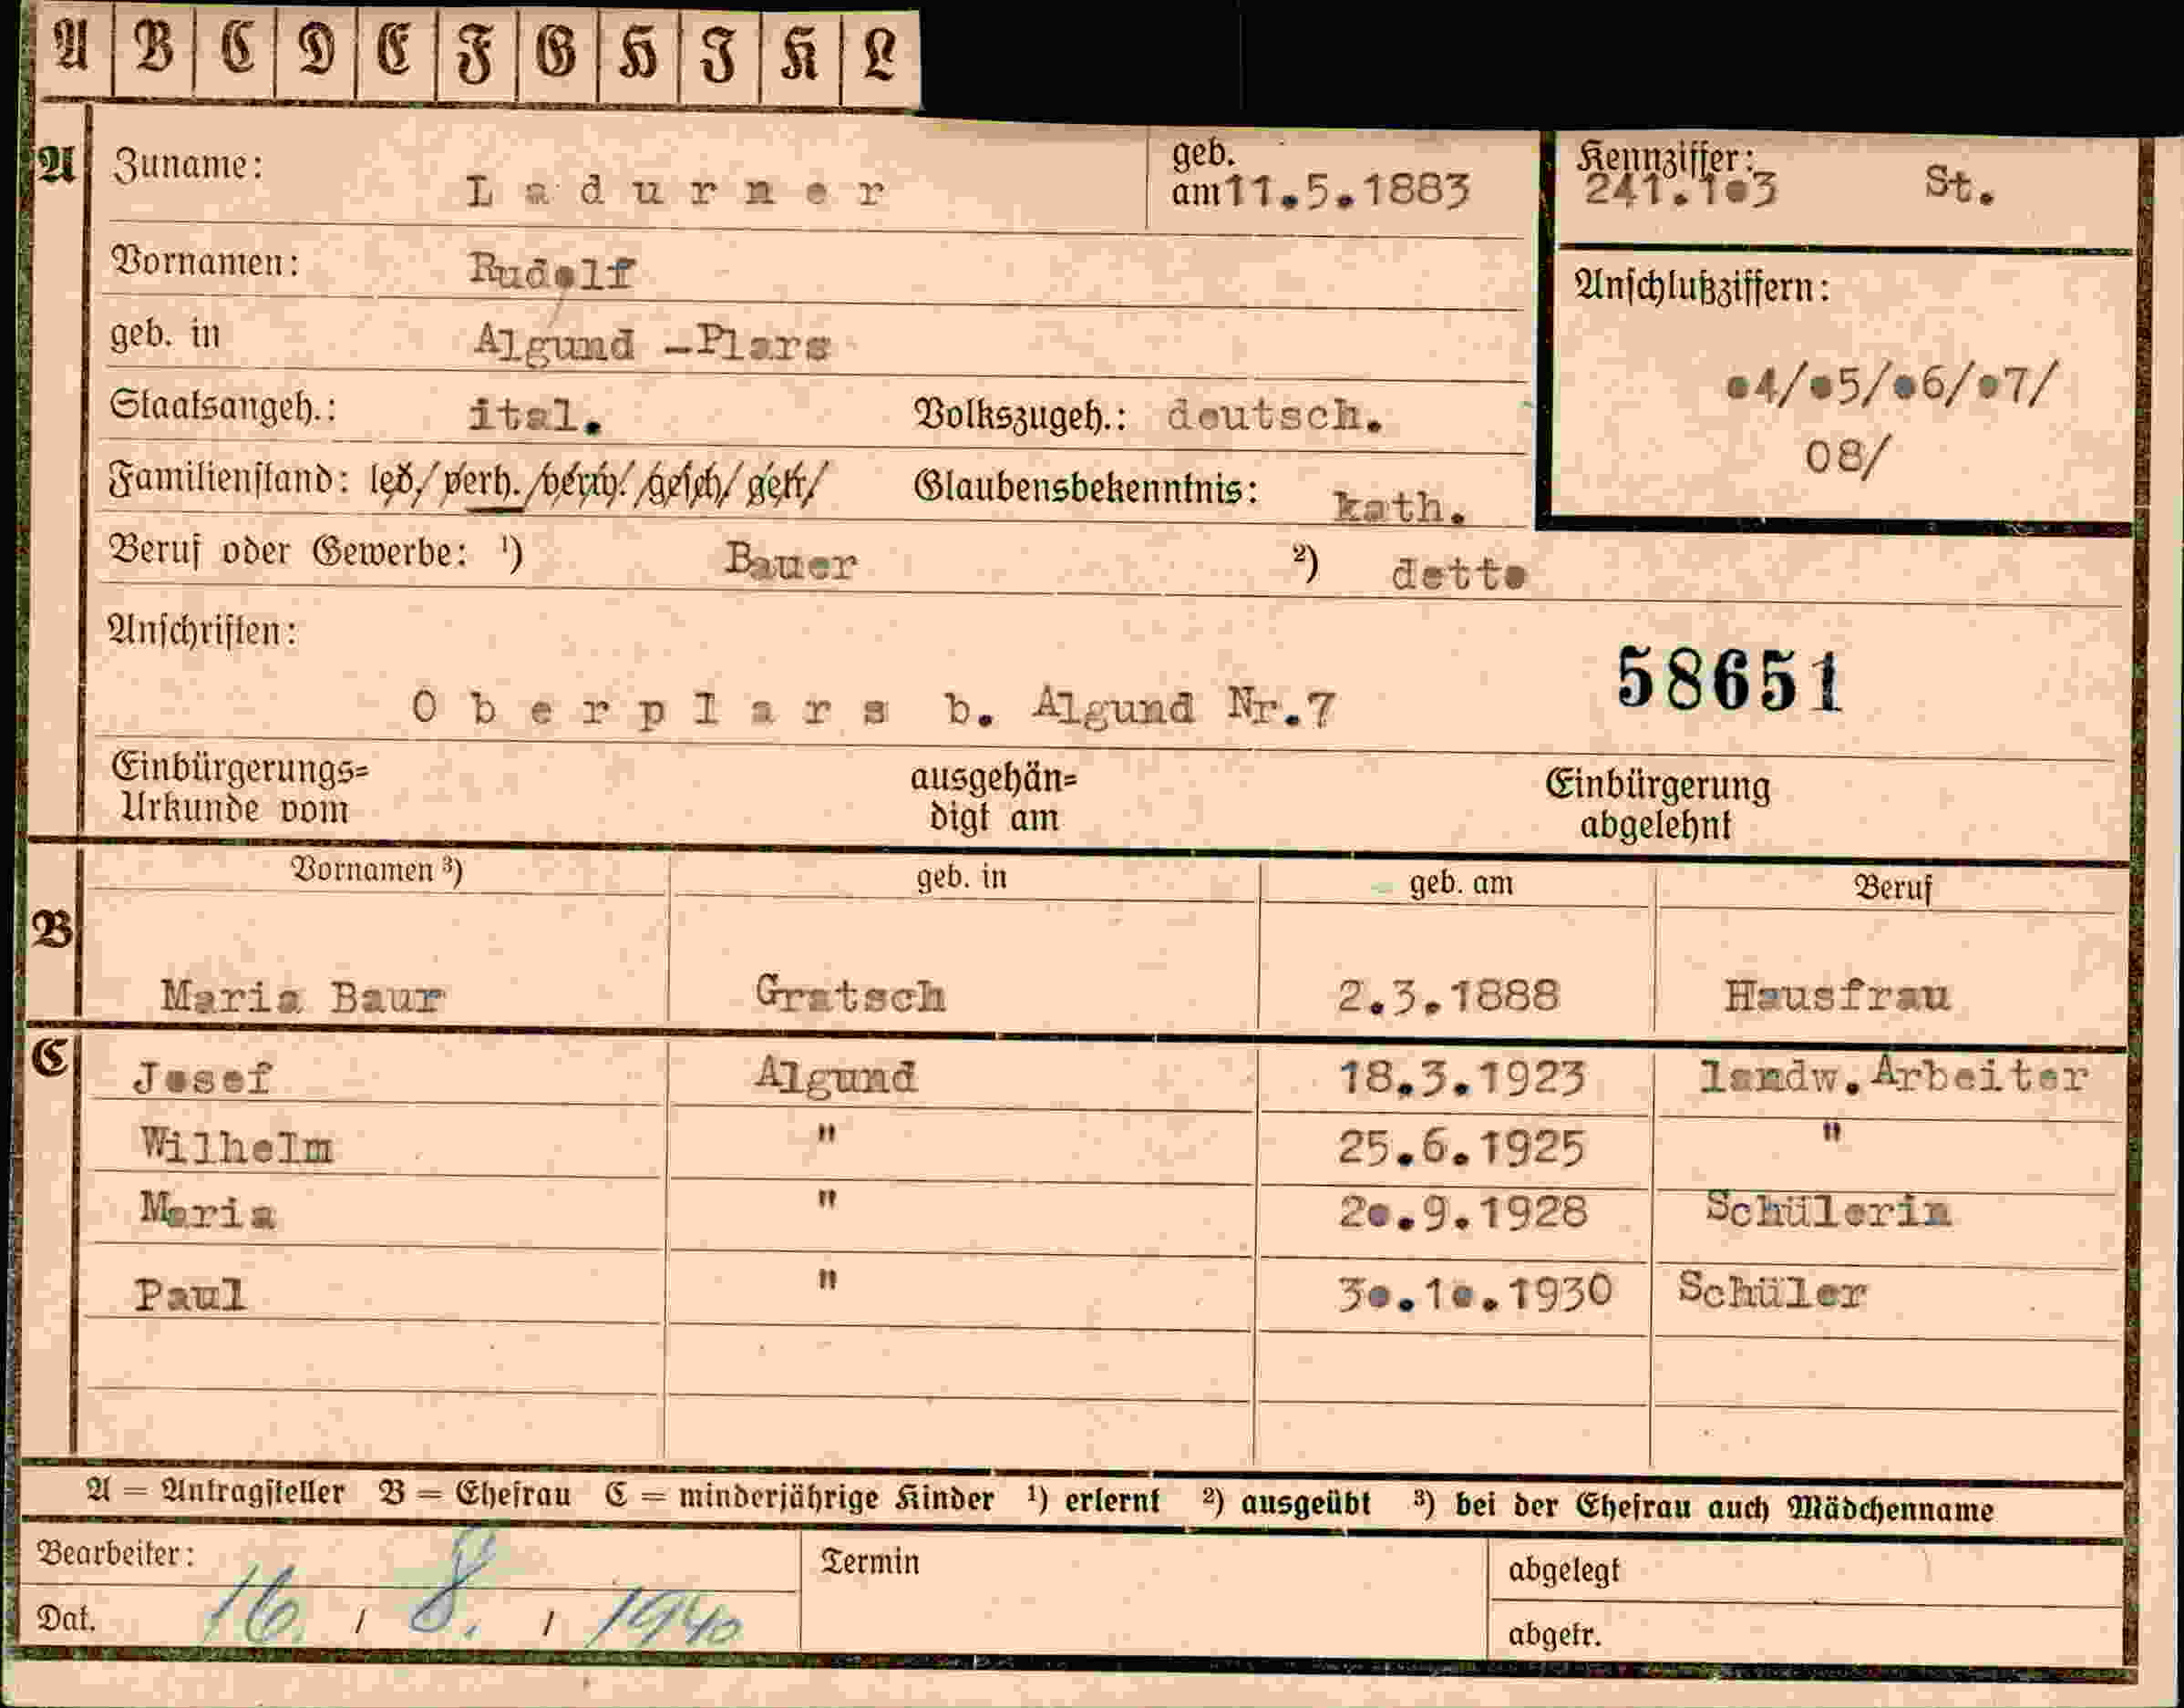 A B C D E F G H I K L
A Zuname: Ladurner geb. am 11.5.1883 Kennziffer: 241.1o3 St.
Vornamen: Rudolf
Anschlußziffern:
geb. in Algund -Plars
o4/o5/o6/o7/
Staatsangeh.: ital. Volkszugeh.: deutsch.
08/
Familienstand: led/verh./verw./gesch/getr/ Glaubensbekenntnis: kath.
Beruf oder Gewerbe: ¹) Bauer ²) detto
Anschriften:
58651
Oberplars b. Algund Nr.7
Einbürgerungs= ausgehän= Einbürgerung
Urkunde vom digt am abgelehnt
Vornamen ³) geb. in geb. am Beruf
B
Maria Baur Gratsch 2.3.1888 Hausfrau
C Josef Algund 18.3.1923 landw.Arbeiter
Wilhelm " 25.6.1925 "
Maria " 2o.9.1928 Schülerin
Paul " 3o.1o.1930 Schüler
A = Antragsteller B = Ehefrau C = minderjährige Kinder ¹) erlernt ²) ausgeübt ³) bei der Ehefrau auch Mädchenname
Bearbeiter: Termin abgelegt
Dat. 16. / 8. / 1940 abgetr.